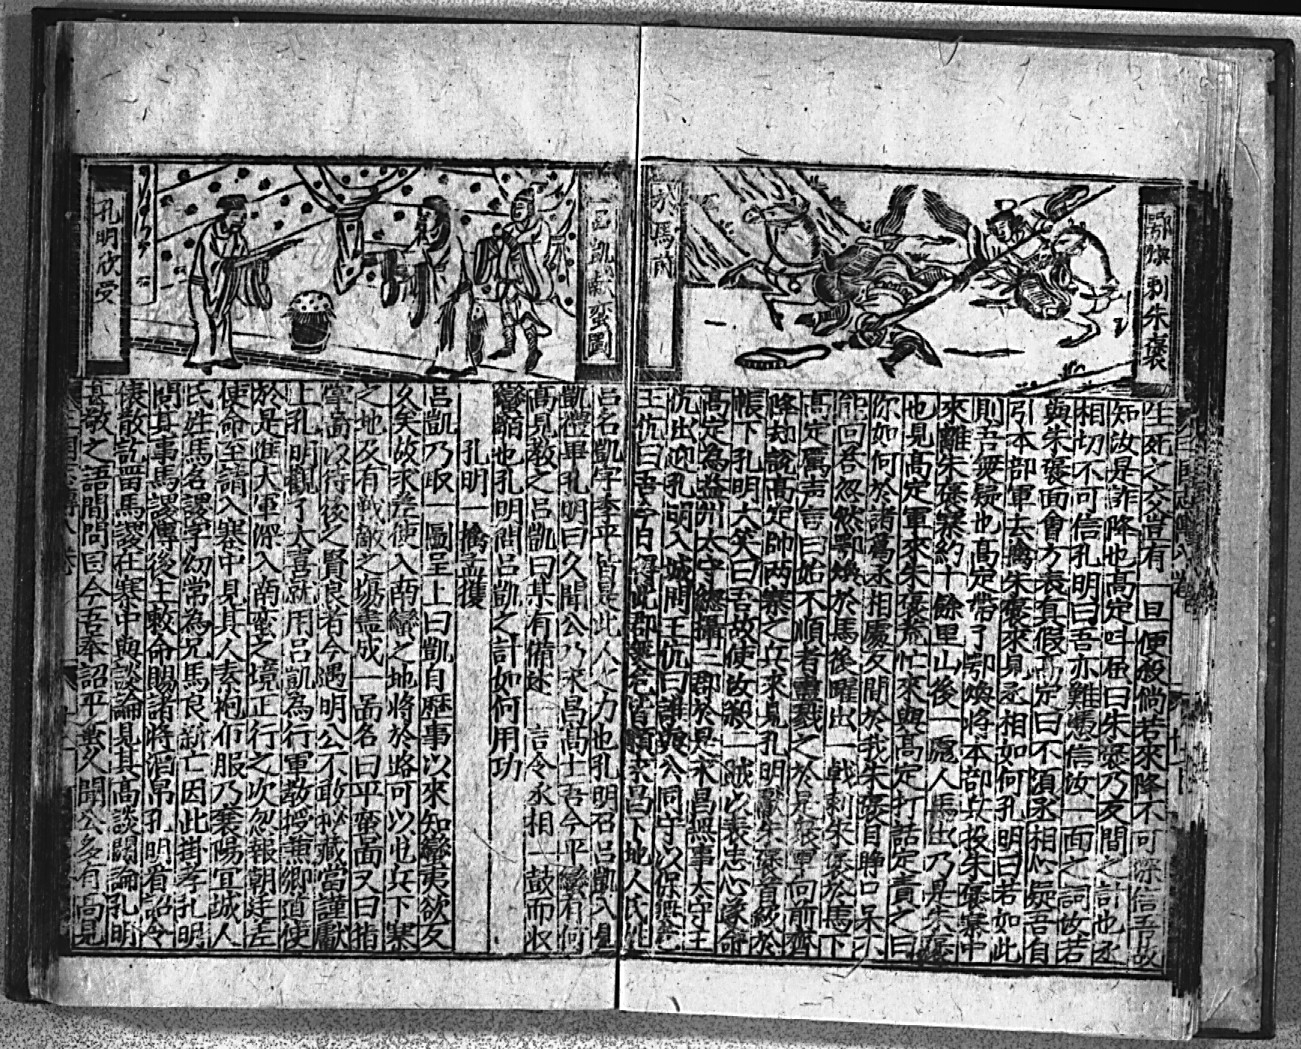 鄂煥刺朱褒
於馬前
生死之交豈有一旦便殺倘若來降不可深信吾故
知汝是詐降也高定叫屈曰朱褒乃反間之計也丞
相切不可信孔明曰吾亦難憑信汝一面之詞故若
與朱褒面會方表真假高定曰不須丞相心疑吾自
引本部軍去擒朱褒來見丞相如何孔明曰若如此
則吾無疑也高定帶了鄂煥將本部兵投朱褒寨中
來離朱褒寨約十餘里山後一彪人馬出乃是朱褒
也見高定軍來朱褒慌忙來與高定打話定責之曰
你如何於諸葛丞相處反間於我朱褒目睜口呆不
能回答忽然鄂煥於馬後躍出一戟刺朱褒於馬下
高定厲声言曰始不順者盡戮之於是褒軍向前齊
降却說高定帥兩寨之兵來見孔明獻朱褒首級於
帳下孔明大笑曰吾故使汝殺二賊以表忠心遂命
高定為益州太守總攝三郡於是永昌無事太守王
伉出迎孔明入城問王伉曰誰與公同守以保無
王伉曰吾今日得此郡無危皆賴永昌下地人氏姓
呂凱獻蛮圖
孔明欣受
呂名凱字季平皆是此人之力也孔明召呂凱入見
凱禮畢孔明曰久聞公乃永昌高士吾今平蠻有何
高見教之呂凱曰某有備述一言令丞相一鼓而收
蠻酋也孔明問呂凱之計如何用功
孔明一擒孟獲
呂凱乃取一圖呈上曰凱自歷事以來知蠻夷欲反
久矣故求差使入南蠻之地將於路可以屯兵下寨
之地及有戰敵之塲畫成一圖名曰平蛮圖又曰指
掌圖以待後之賢良者今遇明公不敢秘藏當謹獻
上孔明觀了大喜就用呂凱為行軍教授兼鄉道使
於是進大軍深入南蛮之境正行之次忽報朝廷差
使命至請入寨中見其人素袍衣服乃襄陽宜城人
氏姓馬名謖字幼常為兄馬良新亡因此掛孝孔明
問其事馬謖傳後主敕命賜諸將酒帛孔明看詔令
懐散訖畄馬謖在寨中與談論見其高談闊論孔明
甚敬之語間問曰今吾奉詔平蛮久聞公多有高見